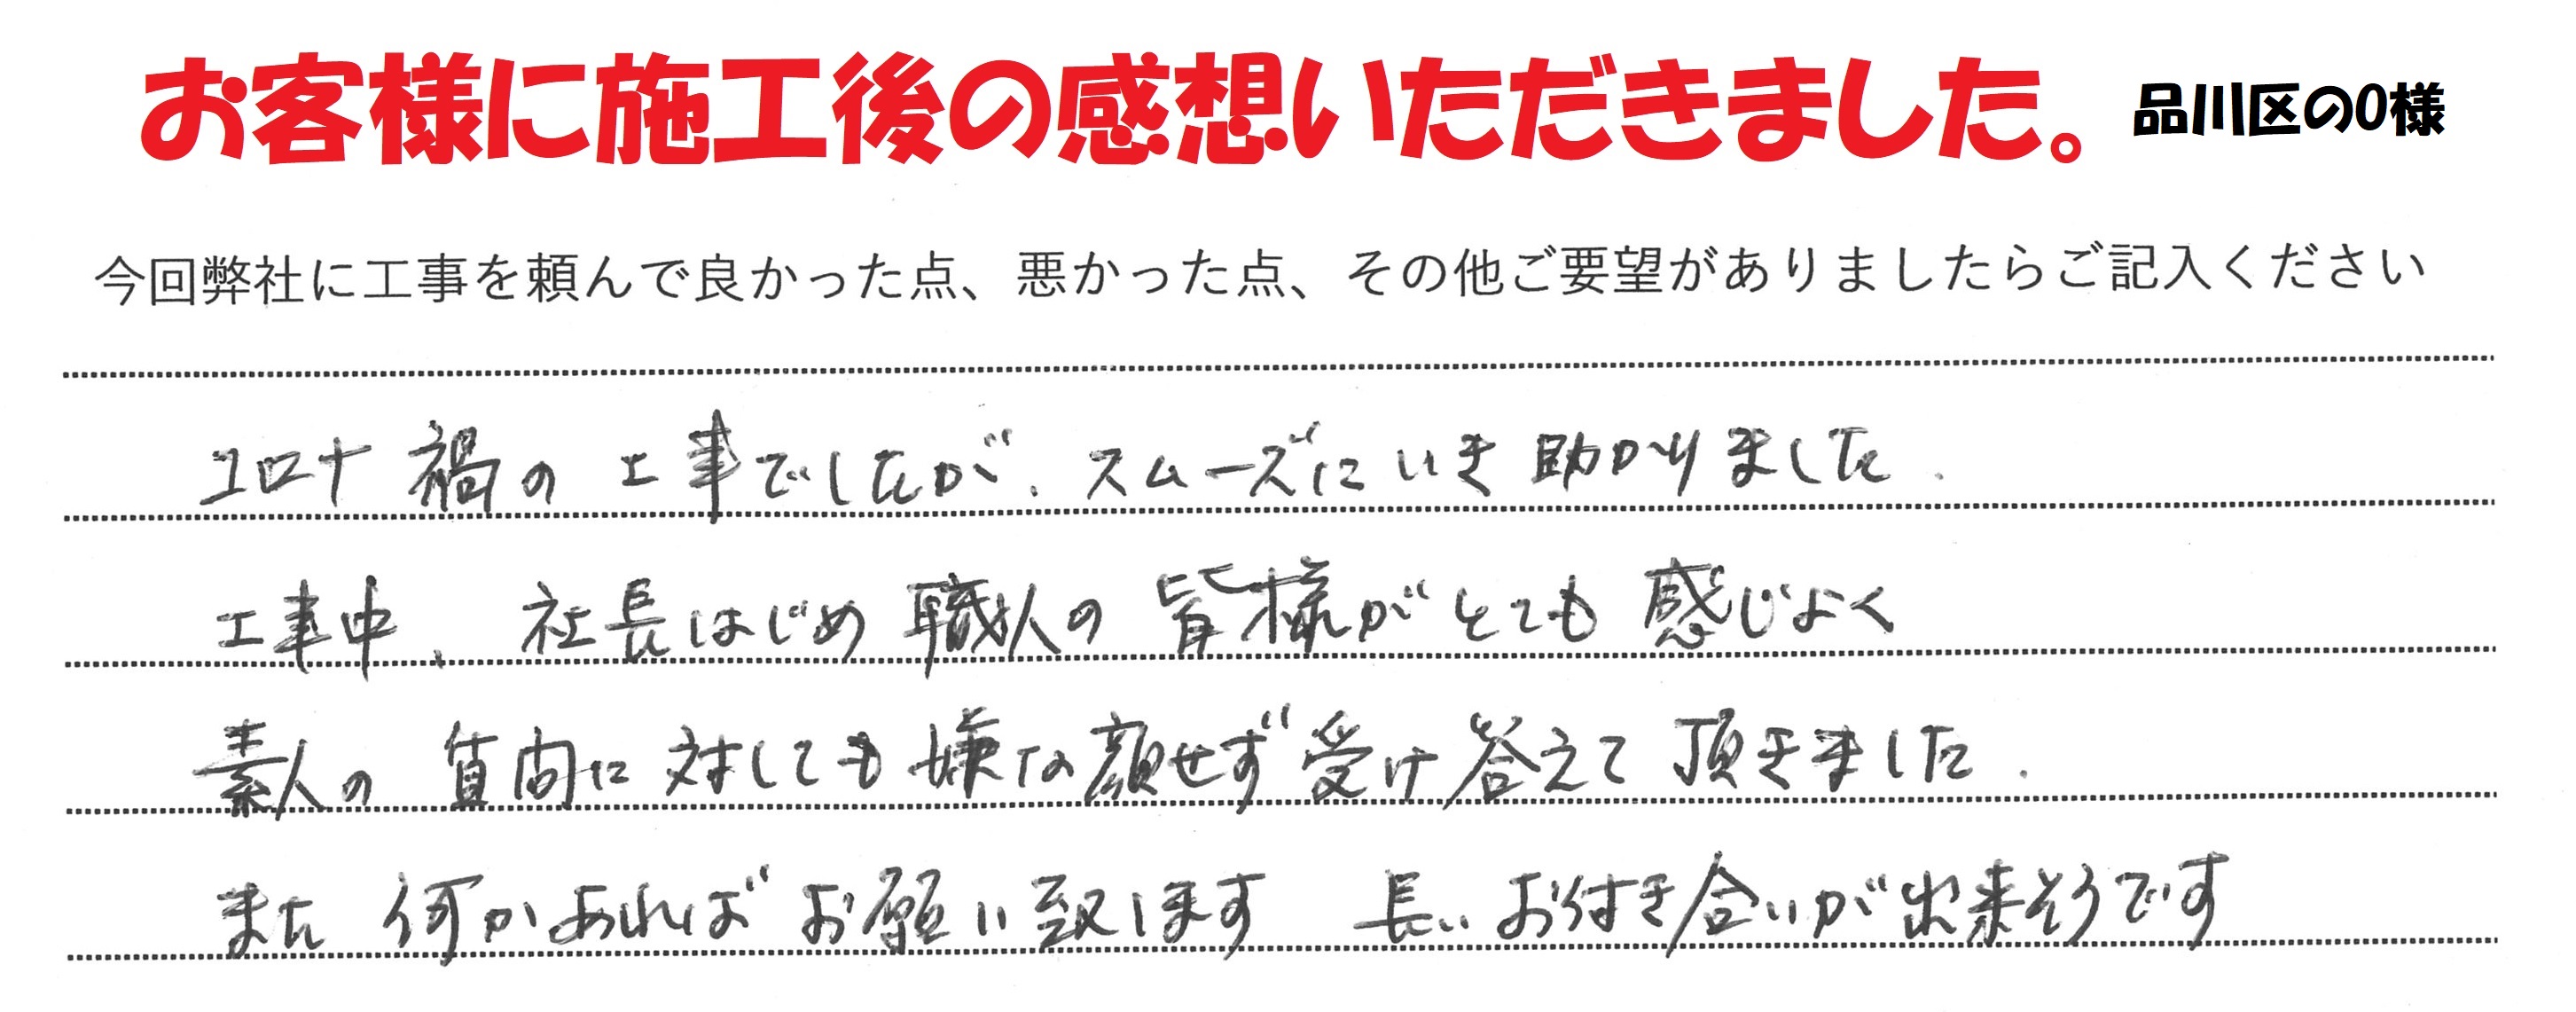 お客様に施工後の感想いただきました。 品川区のO様
今回弊社に工事を頼んで良かった点、悪かった点、その他ご要望がありましたらご記入ください
コロナ禍の工事でしたが、スムーズにいき助かりました.
工事中、社長はじめ職人の皆様がとても感じよく
素人の質問に対しても嫌な顔せず受け答えて頂きました.
また何かあればお願い致します 長いお付き合いが出来そうです